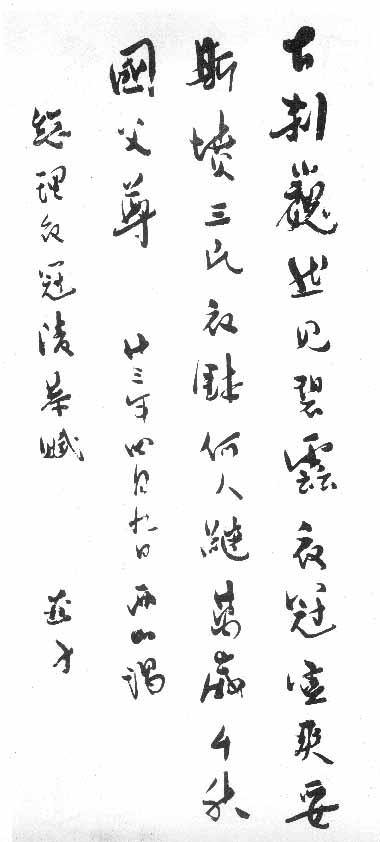 古刹巍然見碧雲衣冠靈爽妥
斯墳三民衣鉢何人繼萬歲千秋
國父尊 廿三年四月九日西山謁
總理衣冠陵恭賦